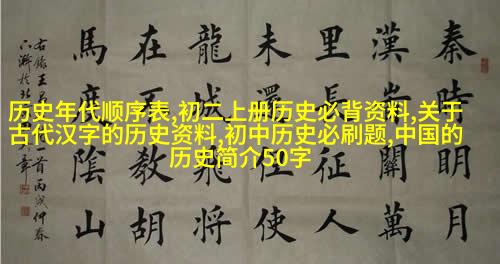 历史年代顺序表,初二上册历史必背资料,关于
古代汉字的历史资料,初中历史必刷题,中国的
历史简介50字
秦時明月
漢時關萬
里長征人
未還但使
龍城飛將
在不教胡
馬度陰山
首丙戌仲春